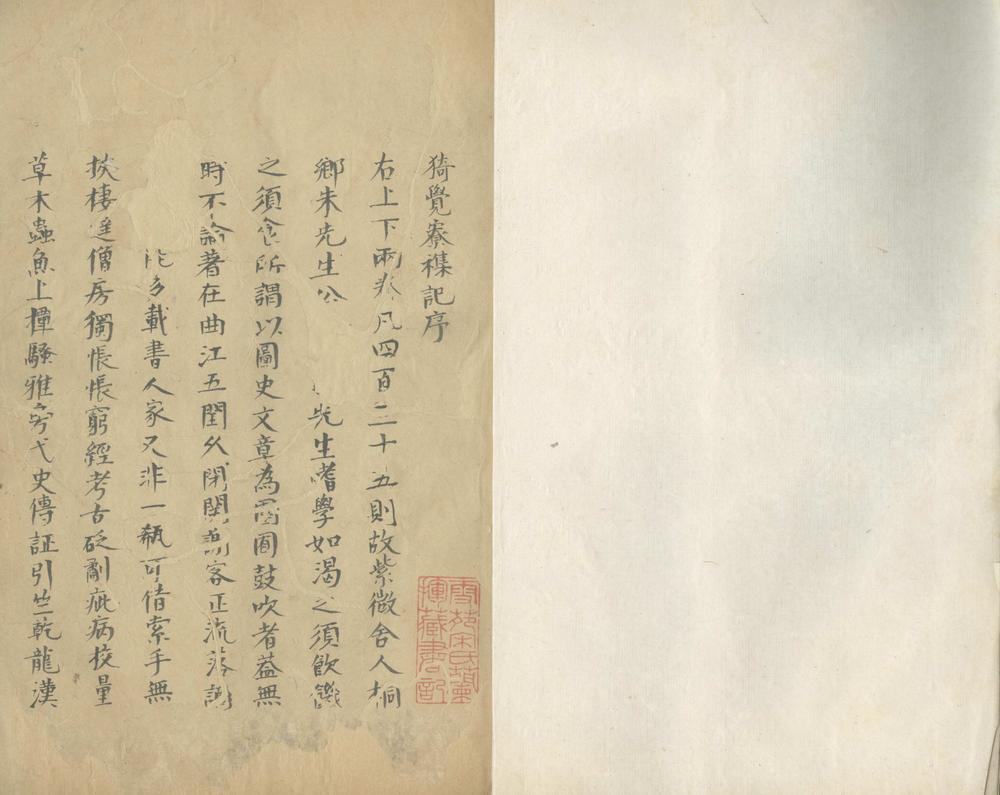 猗覺寮襍記序
右上下兩卷凡四百二十五則故紫微舍人桐
鄉朱先生公先生嗜學如渴之須飲饑
之須食所謂以圖史文章為園囿鼓吹者葢無
時不論著在曲江五閏久閉關謝客正流落謝
能多載書人家又非一瓻可借索手無
挾棲遲僧房獨悵悵窮經考古砭劘疵病挍量
草木蟲魚上撞騷雅旁弋史傳証引竺乾龍漢
雪苑宋氏蘭揮藏書記